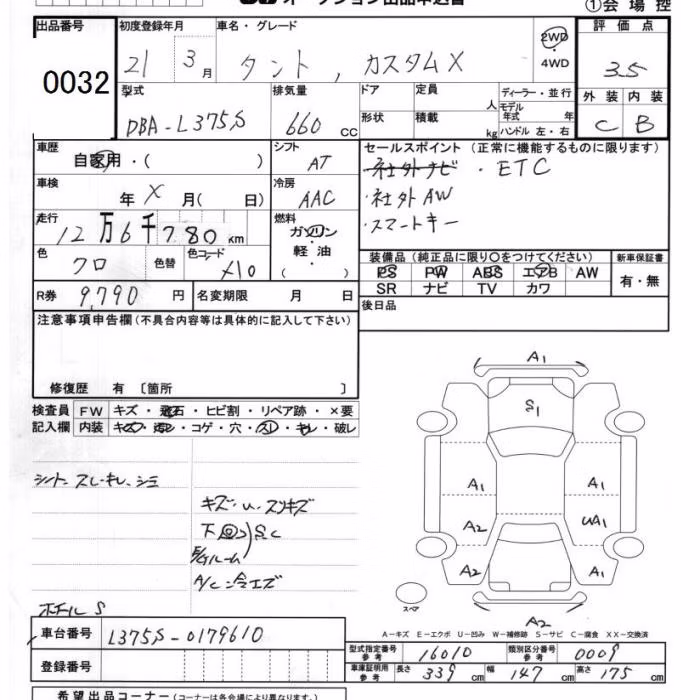 オークション出品申込書
①会場控
出品番号 0032
初度登録年月 21 3月
車名・グレード タント, カスタムX
2WD・4WD
評価点 3.5
外装 C 内装 B
型式 DBA-L375S
排気量 660 CC
ドア
形状
定員 人
積載 kg
ディーラー・並行
モデル年式 年
ハンドル 左・右
車歴 自家用・( )
シフト AT
車検 年 X 月( 日)
冷房 AAC
走行 12万6千780km
燃料 ガソリン 軽油 ( )
色 クロ 色替 色コード X10
R券 9,790円
名変期限 月 日
セールスポイント (正常に機能するものに限ります)
・社外ナビ ・ETC
・社外AW
・スマートキー
装備品 (純正品に限り〇をつけてください)
PS PW ABS エアB AW
SR ナビ TV カワ
新車保証書 有・無
後日品
注意事項申告欄 (不具合内容等は具体的に記入して下さい)
修復歴 有 〔箇所 〕
検査員記入欄
FW キズ・飛石・ヒビ割・リペア跡・×要
内装 キズ・汚レ・コゲ・穴・スレ・キレ・破レ
シート スレ・キレ・シミ
キズ・U・スリキズ
下回り S C
E/Gルーム
A/C・冷エズ
ホイール S
A1
S1
A1 A1
A2 UA1
A2 A1
スペア
A2
A-キズ E-エクボ U-凹み W-補修跡 S-サビ C-腐食 XX-交換済
車台番号 L375S-0179610
登録番号
型式指定番号 参考 16010
類別区分番号 参考 0009
車庫証明用 参考 長さ 339cm 幅 147cm 高さ 175cm
希望出品コーナー (コーナーは各会場により異なります。)